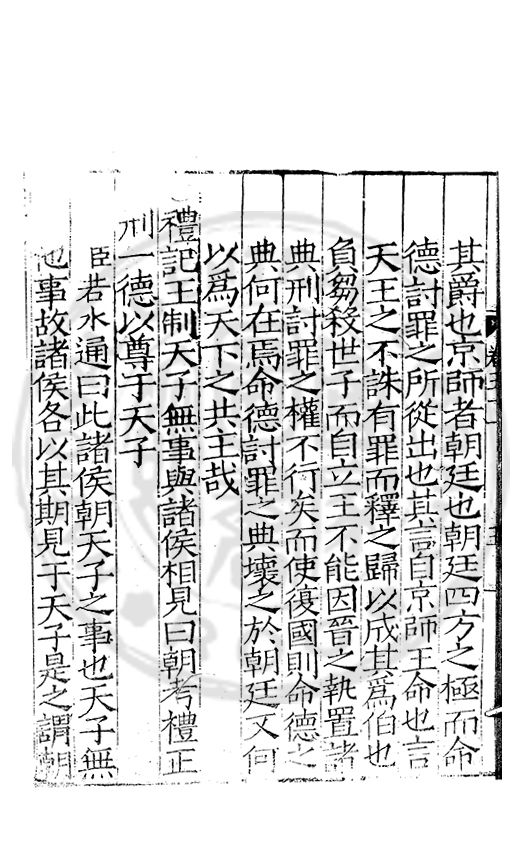 其爵也京師者朝廷也朝廷四方之極而命
德討罪之所從出也其言自京師王命也言
天王之不誅有罪而釋之歸以成其為伯也
負芻殺世子而自立王不能因晉之執置諸
典刑討罪之權不行矣而使復國則命德之
典何在焉命德討罪之典壞之於朝廷又何
以爲天下之共主哉
禮記王制天子無事與諸侯相見曰朝考禮正
刑一德以尊于天子
臣若水通曰此諸侯朝天子之事也天子無
他事故諸侯各以其期見于天子是之謂朝